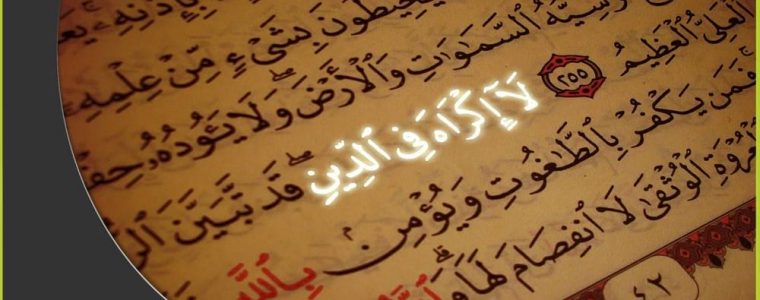 بِإِذْنِهِۦ
يُحِيطُونَ بِشَىْءٍ مِّنْ عِلْمِهِۦٓ
ٱلسَّمَٰوَٰتِ وَٱلْأَرْضَ وَلَا يَـُٔودُهُۥ
ٱلْعَلِىُّ ٱلْعَظِيمُ ٢٥٥ لَآ إِكْرَاهَ فِى ٱلدِّينِ قَد تَّبَيَّنَ
فَمَن يَكْفُرْ بِٱلطَّٰغُوتِ وَيُؤْمِنۢ بِٱللَّهِ
ٱلْوُثْقَىٰ لَا ٱنفِصَامَ لَهَا
٤٢